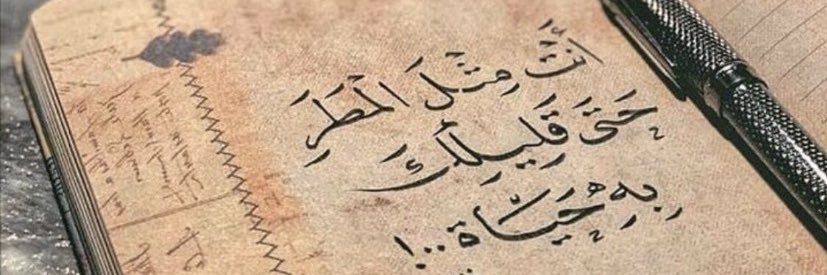 أَنتَ مِثلَ المَطَرِ
حَتَّى قَلِيلِكَ
بِهِ حَيَاة ...!